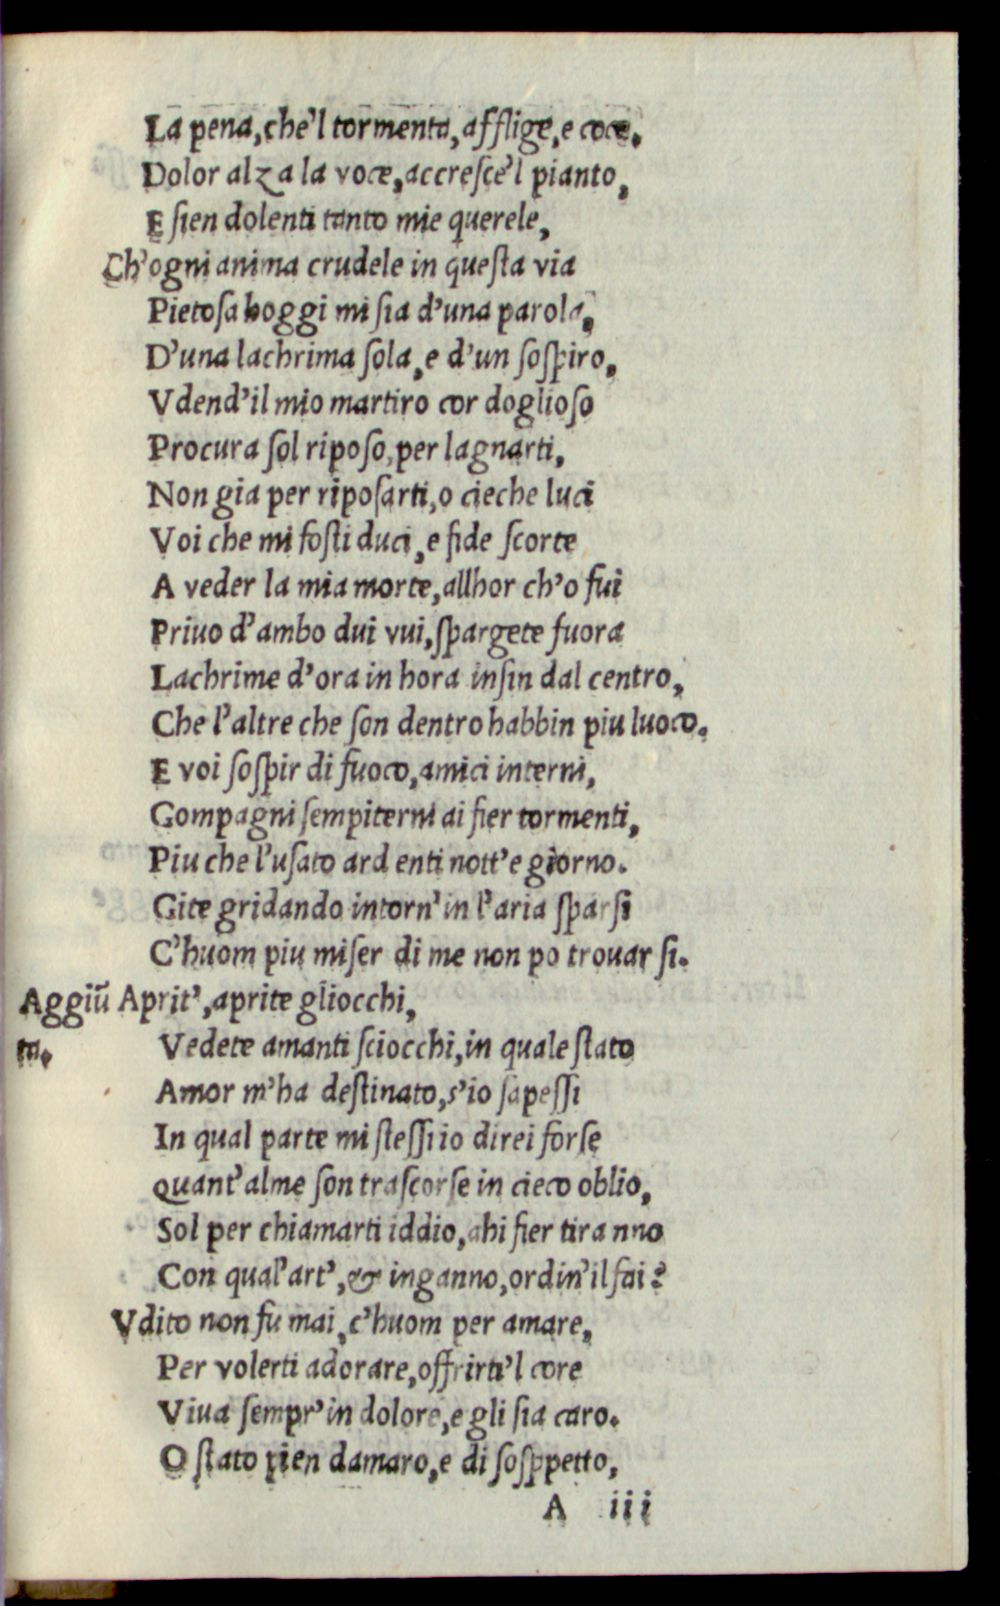 La pena, che'l tormenta, afflige, e coce.
Dolor alza la voce, accresce'l pianto,
E sien dolenti tanto mie querele,
Ch'ogni anima crudele in questa via
Pietosa hoggi mi sia d'una parola,
D'una lachrima sola, e d'un sospiro,
Vdend'il mio martiro cor doglioso
Procura sol riposo, per lagnarti,
Non gia per riposarti, o cieche luci
Voi che mi fosti duci, e fide scorte
A veder la mia morte, allhor ch'o fui
Priuo d'ambo dui vui, spargete fuora
Lachrime d'ora in hora insin dal centro,
Che l'altre che son dentro habbin piu luoco.
E voi sospir di fuoco, amici interni,
Gompagni sempiterni ai fier tormenti,
Piu che l'usato ard enti nott'e giorno.
Gite gridando intorn'in l'aria sparsi
C'huom piu miser di me non po trouar si.
Aggiũ Aprit', aprite gliocchi,
ta. Vedete amanti sciocchi, in quale stato
Amor m'ha destinato, s'io sapessi
In qual parte mi stessi io direi forse
quant'alme son trascorse in cieco oblio,
Sol per chiamarti iddio, ahi fier tira nno
Con qual'art', & inganno, ordin'il fai?
Vdito non fu mai, c'huom per amare,
Per volerti adorare, offrirti'l core
Viua sempr'in dolore, e gli sia caro.
O stato pien damaro, e di sosppetto,
A iii